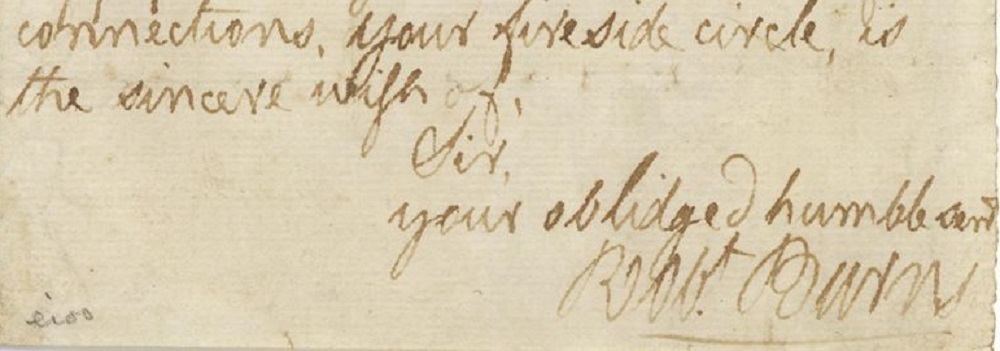 connections, your fireside circle, is
the sincere wish of,
Sir,
your oblidged humble servt
Robt. Burns